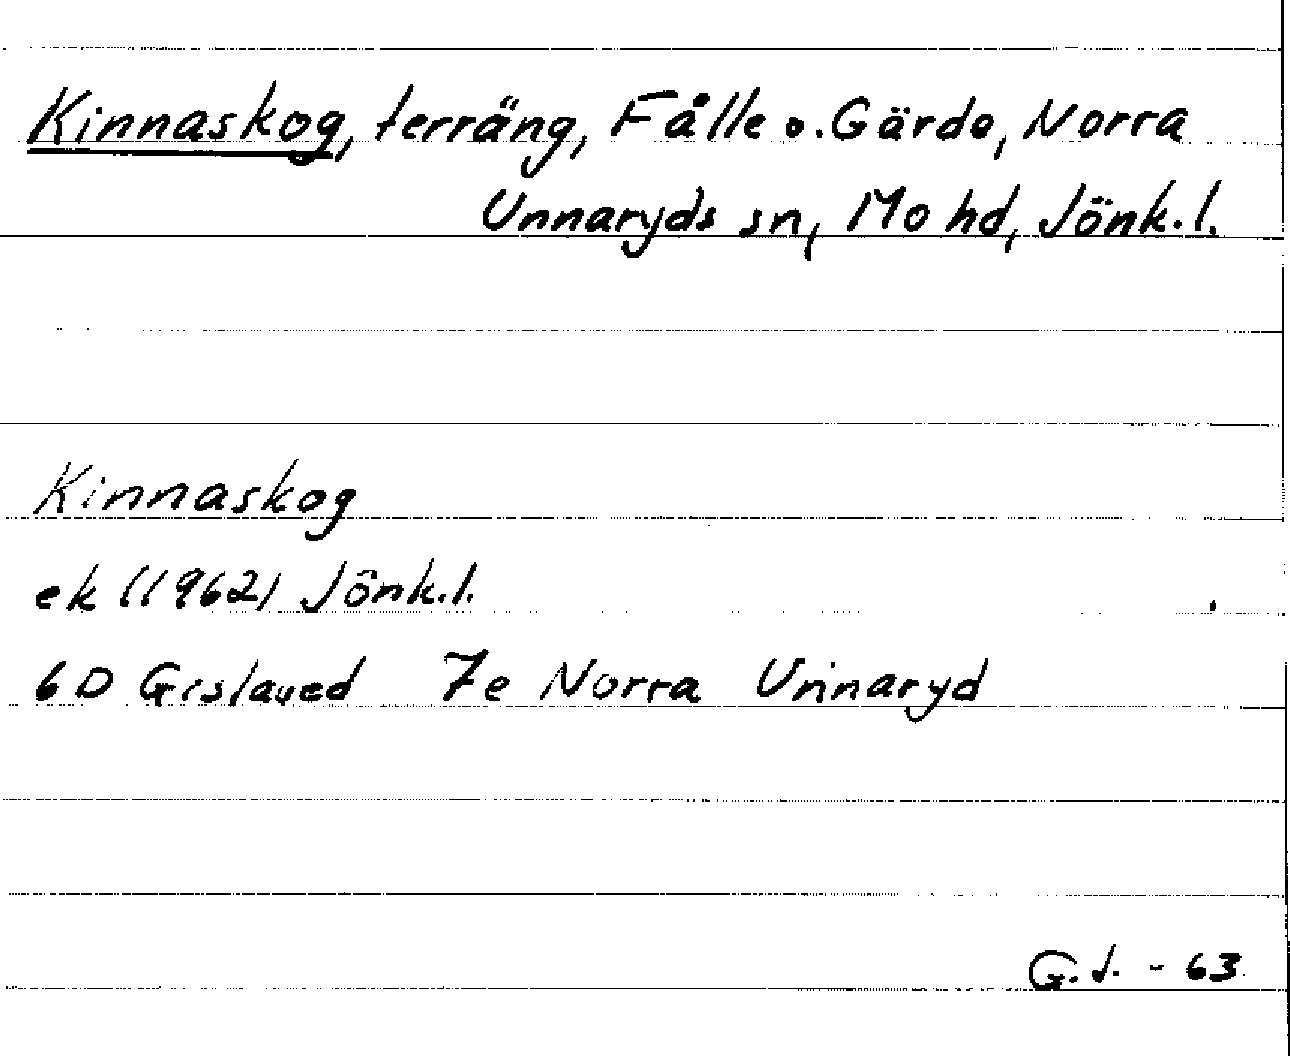 Kinnaskog, terräng, Fålle o. Gärdo, Norra
Unnaryds sn, Mo hd, Jönk.l.
Kinnaskog
ek (1962) Jönk.l.
6D Gislaved 7e Norra Unnaryd
G.J. - 63